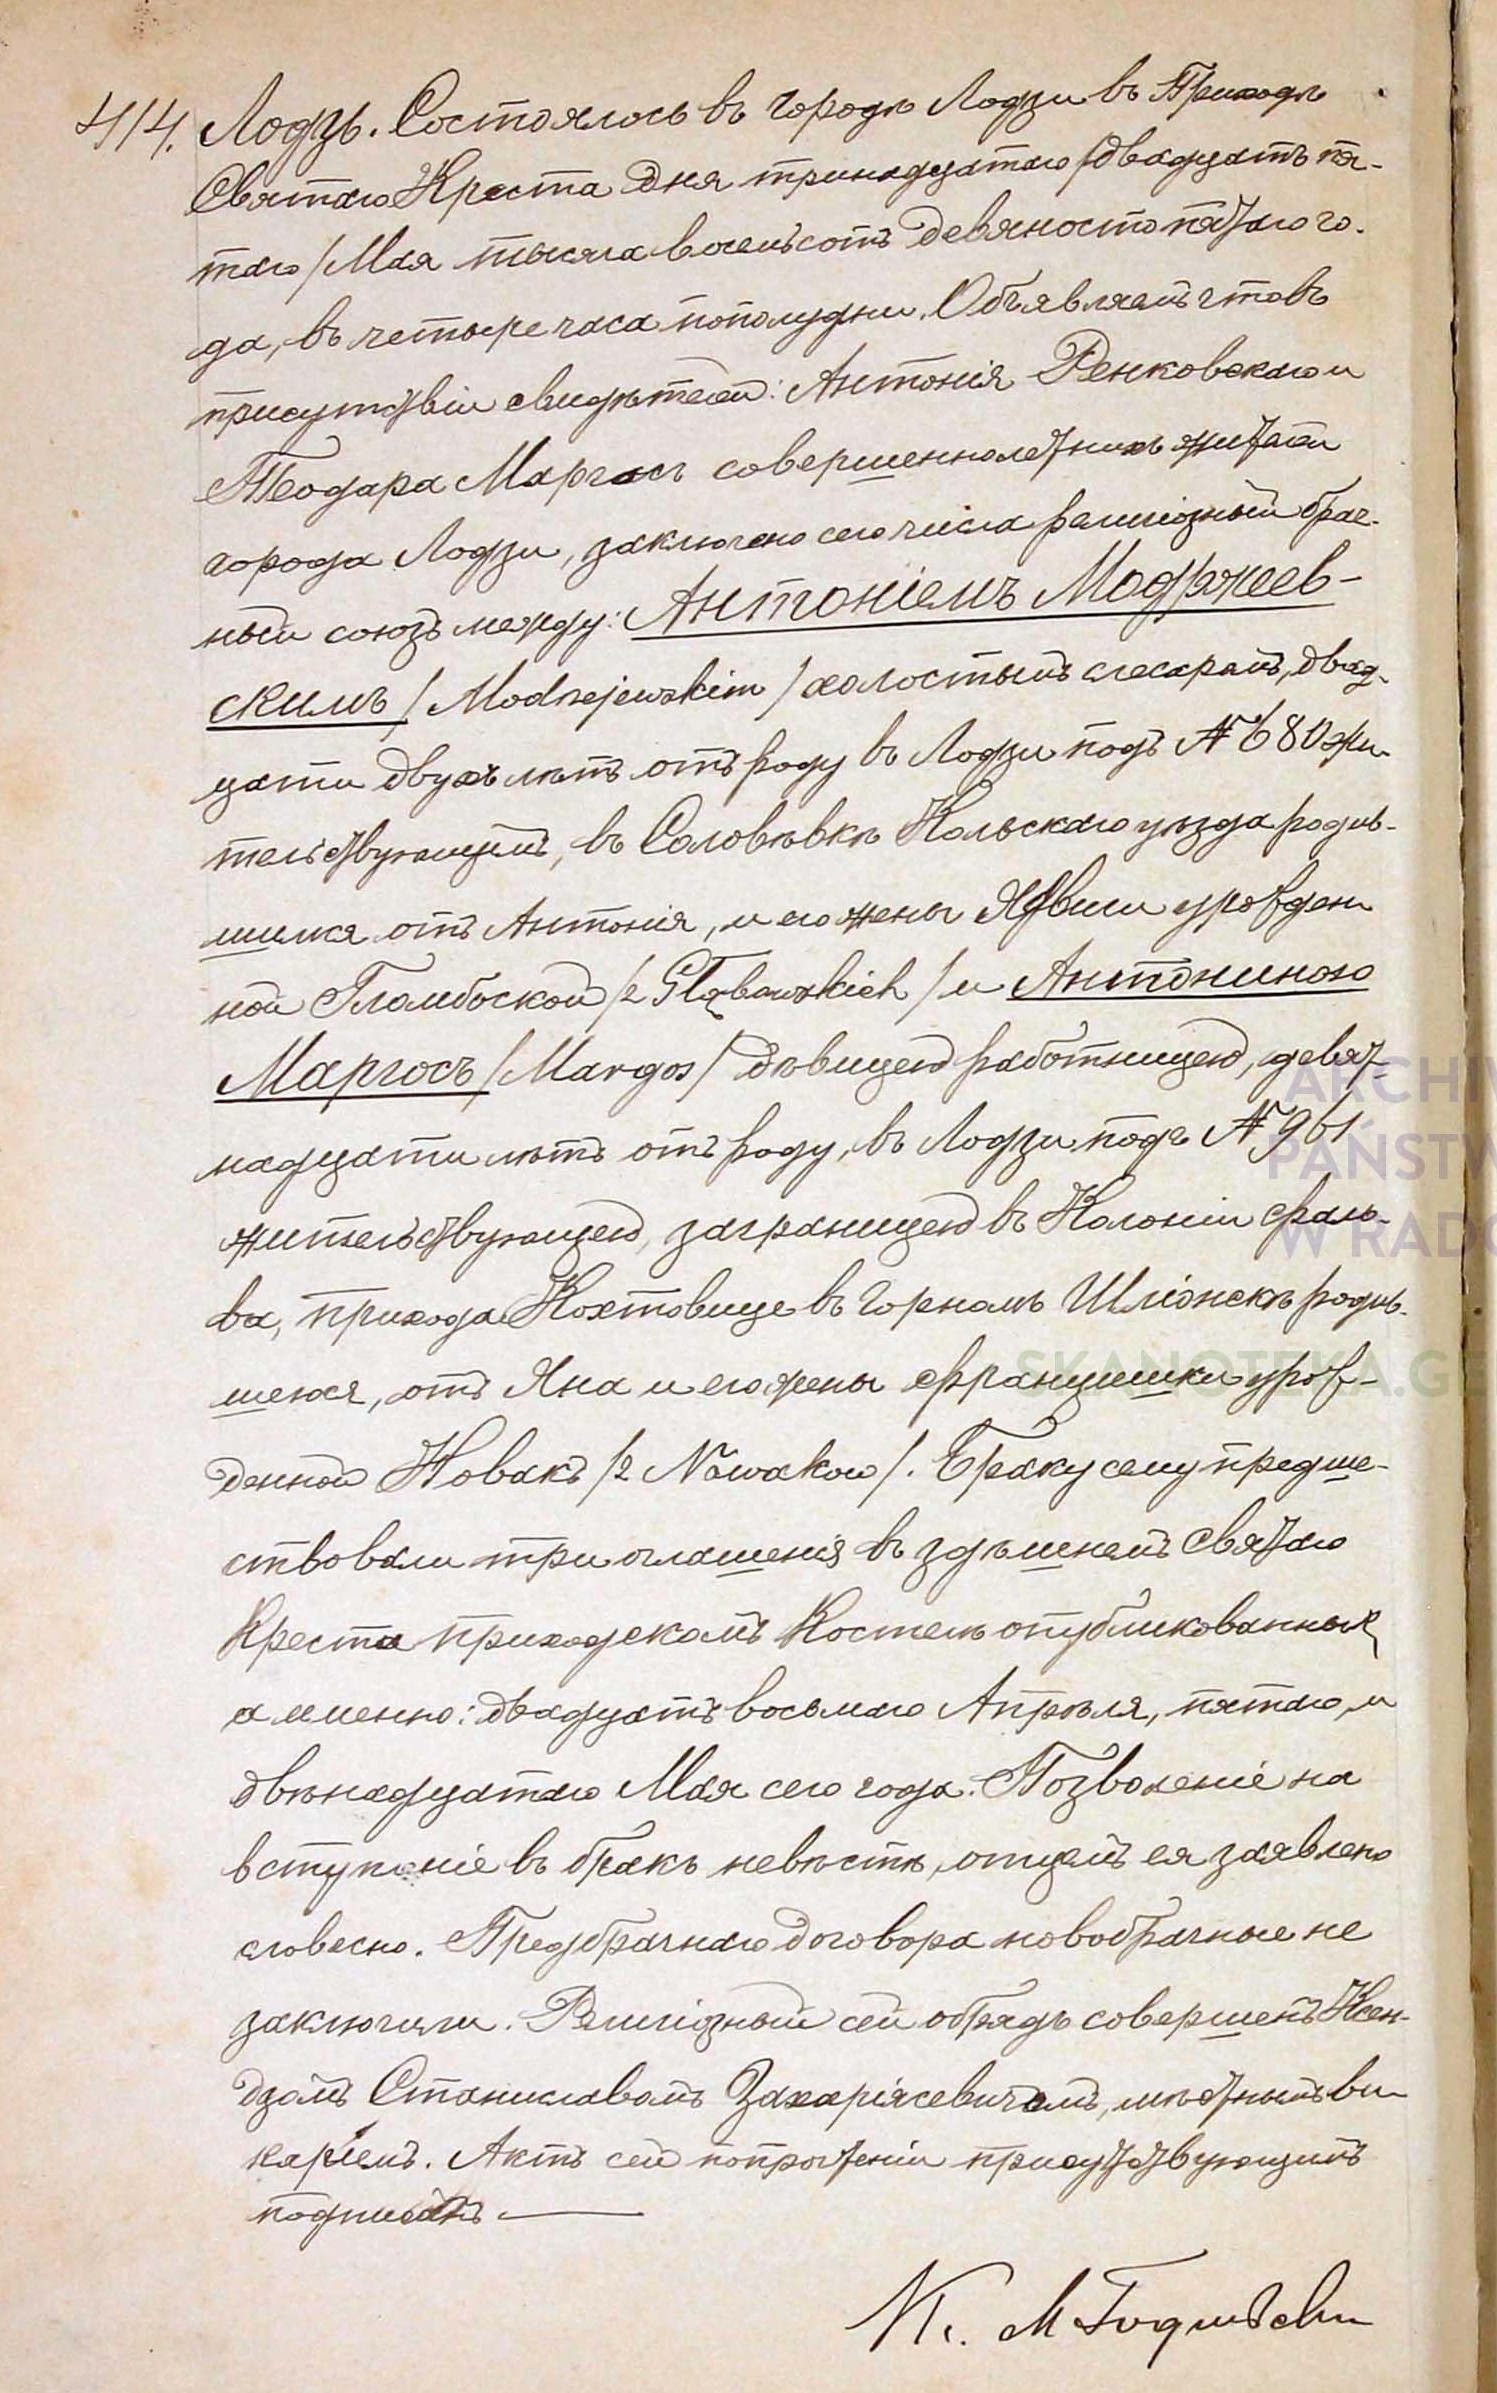 414. Лодзь. Состоялось въ городѣ Лодзи въ Приходѣ
Святаго Креста дня тринадцатаго /двадцать пя-
таго/ Мая тысяча восемьсотъ девяносто пятаго го-
да, въ четыре часа пополудни. Объявляемъ что въ
присутствіи свидѣтелей: Антонія Ренковскаго и
Теодара Маргосъ совершеннолетнихъ жителей
города Лодзи, заключено сего числа религіозный брач-
ный союзъ между: Антоніемъ Моджеев-
скимъ /Modrzejewskim/ холостымъ слесаремъ, двад-
цати двухъ лѣтъ отъ роду въ Лодзи подъ № 680 жи-
тельствующимъ, въ Соловѣвкѣ Кольскаго уѣзда родив-
шимся отъ Антонія, и его жены Ядвиги урожден-
ной Гломбоской /z Głąbowskich/ и Антониною
Маргосъ /Margos/ дѣвицею работницею, девят-
надцати лѣтъ отъ роду, въ Лодзи подъ № 961
жительствующею, заграницею въ Колоніи
прихода Кохтовице въ Горномъ Шліонскѣ родив-
шеюся, отъ Яна и его жены Францишки урож-
денной Новакъ /z Nowaków/. Браку сему предше-
ствовали три оглашенія въ здѣшнемъ Святаго
Креста приходскомъ Костелѣ опубликованныя,
а именно: двадцать восьмаго Апрѣля, пятаго, и
двѣнадцатаго Мая сего года. Позволеніе на
вступленіе въ бракъ невѣстѣ, отцемъ ея заявлено
словесно. Предбрачнаго договора новобрачные не
заключили. Религіозный сей обрядъ совершенъ Ксен-
дзомъ Станиславомъ Захаріясевичемъ, мѣстнымъ ви-
каріемъ. Актъ сей по прочтеніи присутствующимъ
подписанъ
ARCHI
PAŃSTW
W RADO
SKANOTEKA.GE